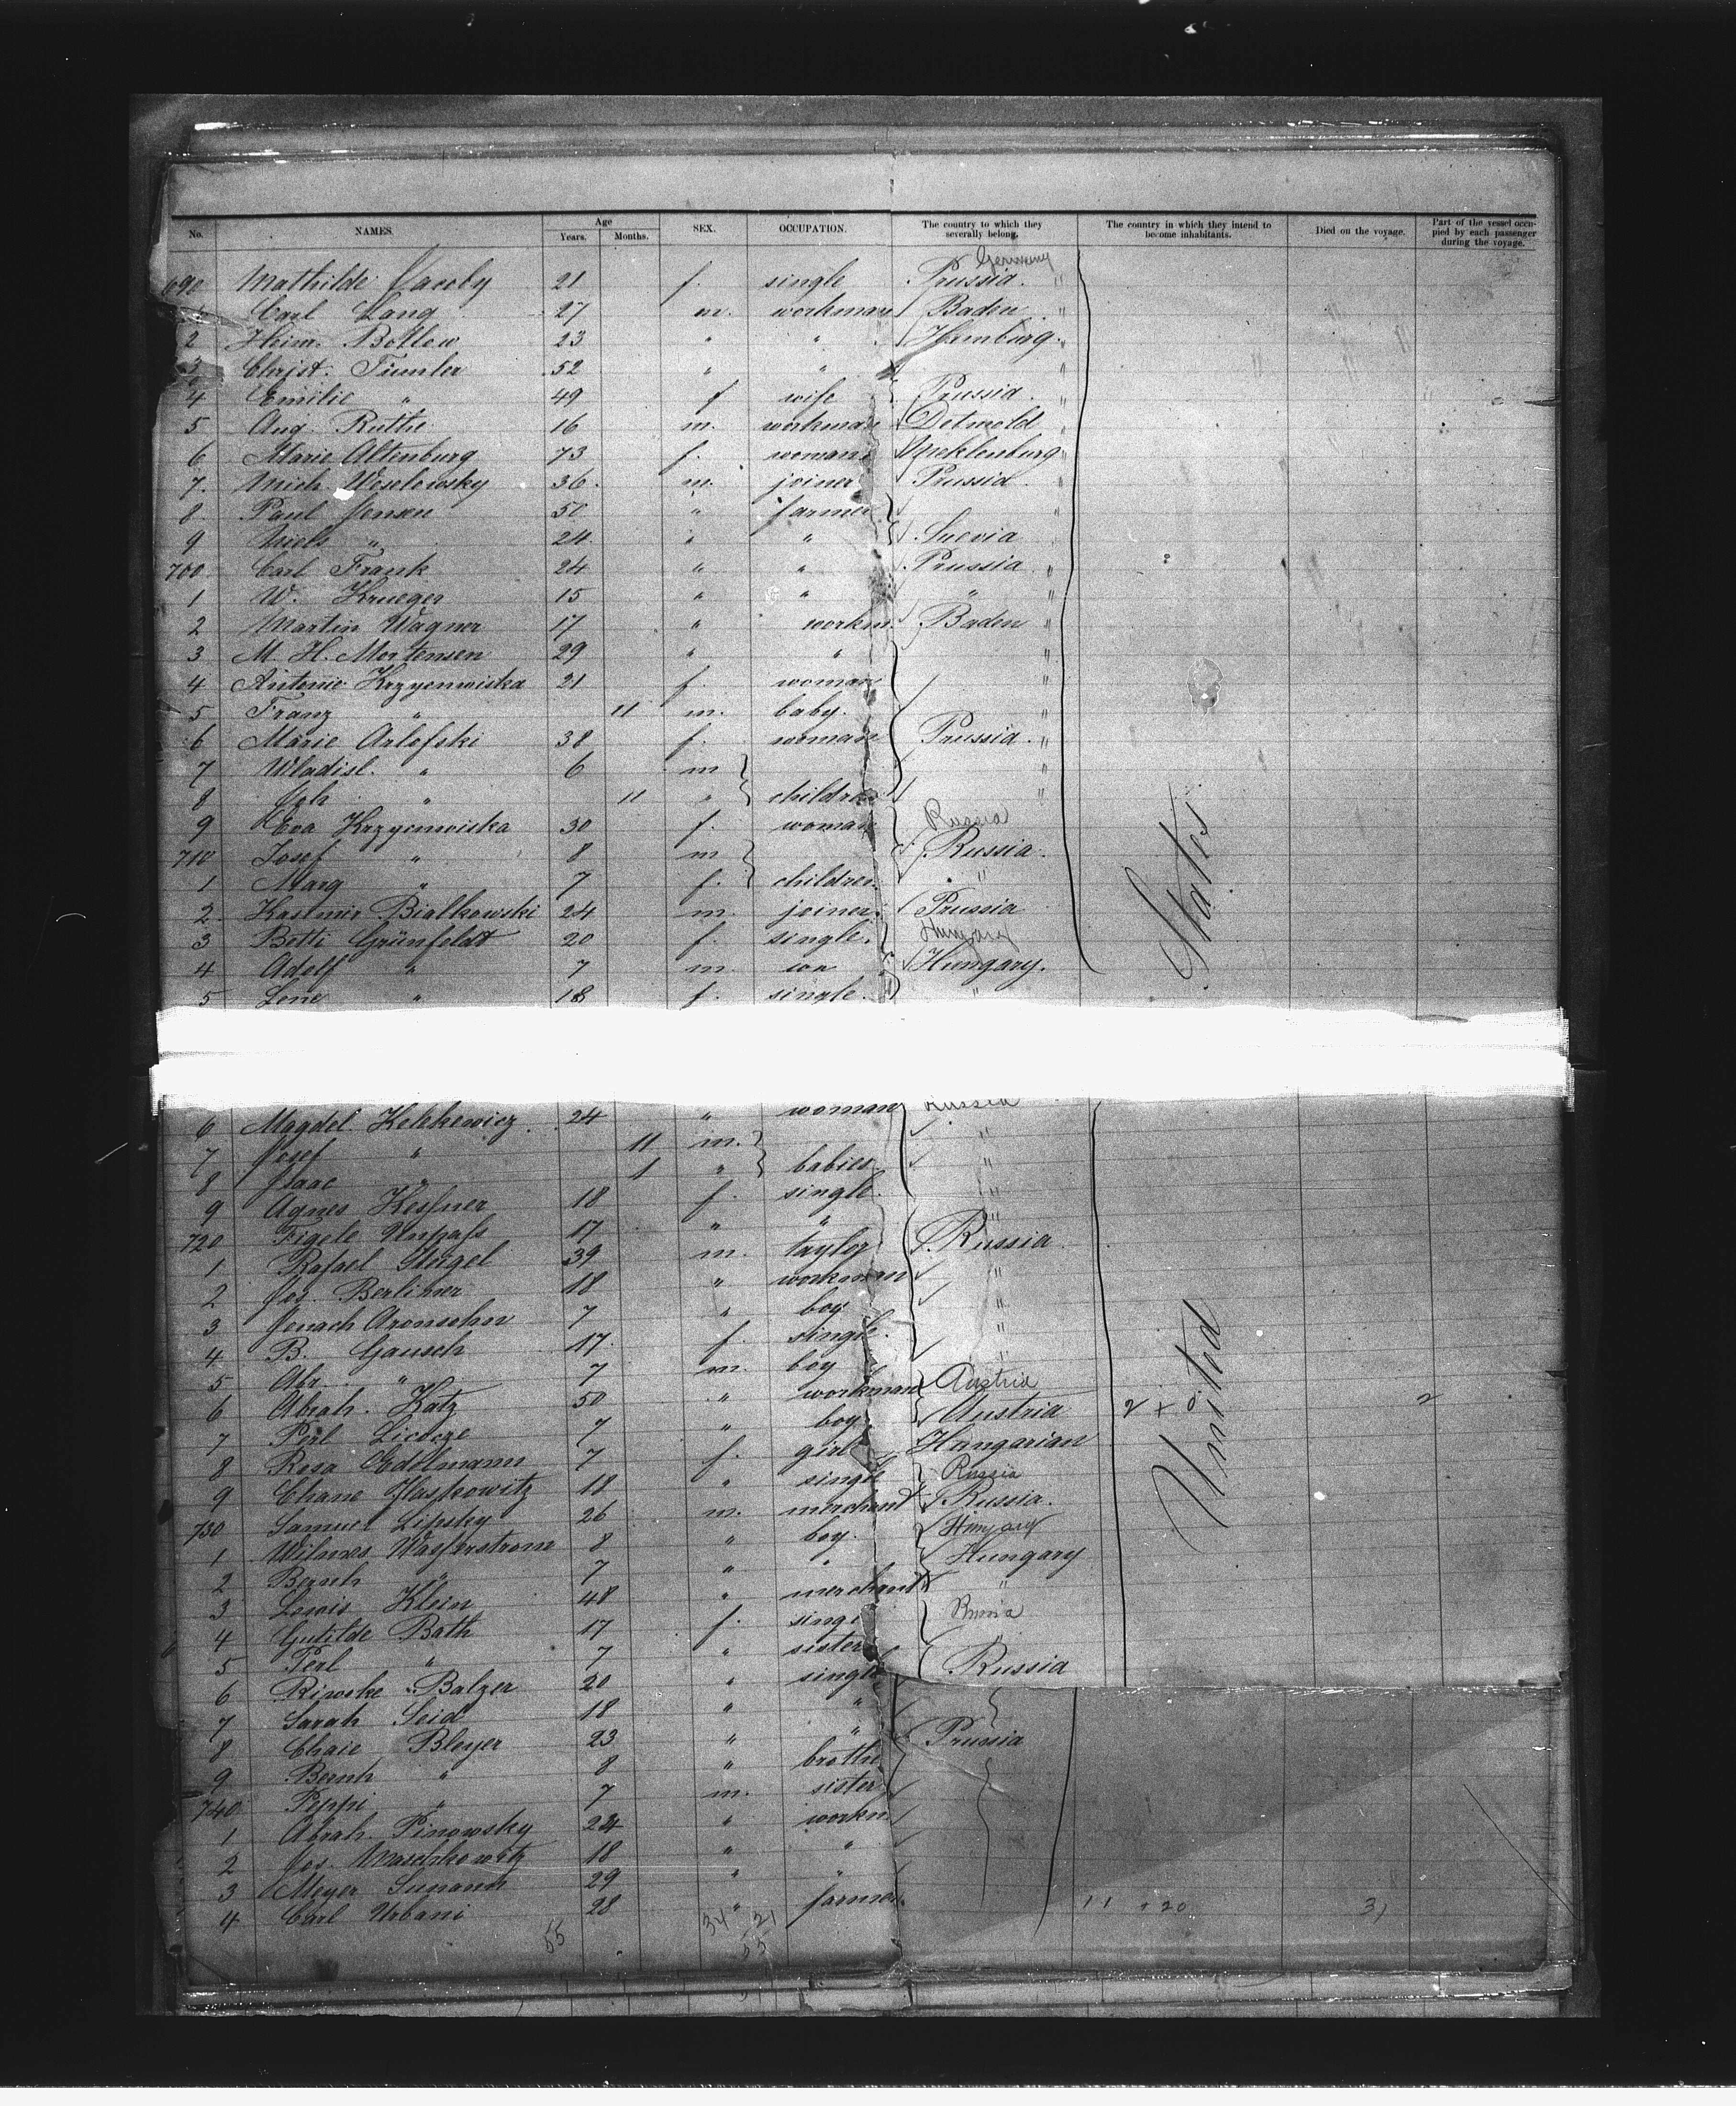 No. NAMES. Age Years. Months. SEX. OCCUPATION. The country to which they severally belong. The country in which they intend to become inhabitants. Died on the voyage. Part of the vessel occupied by each passenger during the voyage.
Germany
690 Mathilde Jacoby 21 f. single Prussia. "
Carl Lang 27 m. workman Baden "
2 Heinr. Bottew 23 " " Hamburg. "
3 Christ. Timler 52 " " "
4 Emilie " 49 f wife Prussia. "
5 Aug. Ruthe 16 m. workman Detmold "
6 Marie Altenburg 73 f. woman Meklenburg "
7. Mich. Weselowsky 36. m. joiner Prussia. "
8. Paul Jensen 50 " farmer "
9 Niels " 24. " " Suevia
700 Carl Frank 24 " " Prussia "
1 W. Krueger 15 " " " "
2 Martin Wagner 17 " workm. Baden "
3 M. H. Mortensen 29 " " "
4 Antonie Krzyenwiska 21 f. woman "
5 Franz " 11 m. baby. "
6 Marie Arlofski 38 f. woman Prussia. "
7 Wladisl. " 6 m "
8 Joh " 11 " children "
9 Eva Krzyenwiska 30 f. woman Russia
710 Josef " 8 m Russia.
1 Marg " 7 f. children "
2 Kasimir Bialkowski 24 m. joiner Prussia
3 Betti Grünfeldt 20 f. single. Hungary
4 Adolf " 7 m. Hungary.
5 Lene " 18 f. single. "
States
6 Magdel. Kelekewicz 24 " woman Russia
7 Josef " 11 m. "
8 Isaac " 1 " babies "
9 Agnes Kessner 18 f. single. "
720 Figele 17 " " "
1 Rafael Steigel 39 m. taylor Russia
2 Jos. Berliner 18 " workman "
3 Jenach Aronsohn 7 " boy "
4 B. Gausch 17. f. single. "
5 Abr. " 7 m. boy "
6 Abrah. Katz 50 " workman Austria
7 Perl 7 " boy Austria 2 + 0 2
8 Rosa Edelmann 7 f. girl Hungarian
9 Chane Haskowitz 18 " single Russia
730 Samuel Lipsky 26 m. merchant Russia.
1 Wilmos Wasserstrom 8 " boy. Hungary
2 Bernh " 7 " " Hungary
3 Lewis Klein 48 " merchant "
4 Gutilde Bath 17 f. singl Russia
5 Perl " 7 " sister
6 Riwoke Balzer 20 " single Russia
7 Sarah Seid 18 " "
8 Chaie Bleyer 23 " " Prussia
9 Bernh " 8 " brothe
740 Peppi " 7 m. sister
1 Abrah. Pinowsky 24 " workm
2 Jos. Waschkowitz 18 " "
3 Meyer Sumann 29 " "
4 Carl Urbani 28 " farmer 11 + 20 31
United
55 34 21
55